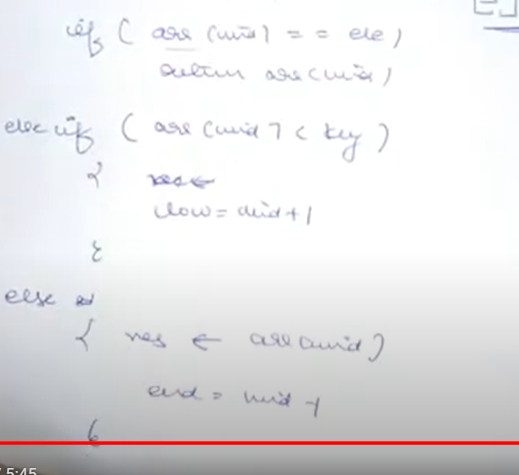 if ( arr (mid) = = ele )
return arr (mid)
else if ( arr (mid ] < key )
{ res ←
low = mid + 1
}
else
{ res ← arr (mid )
end = mid - 1
}
5:45